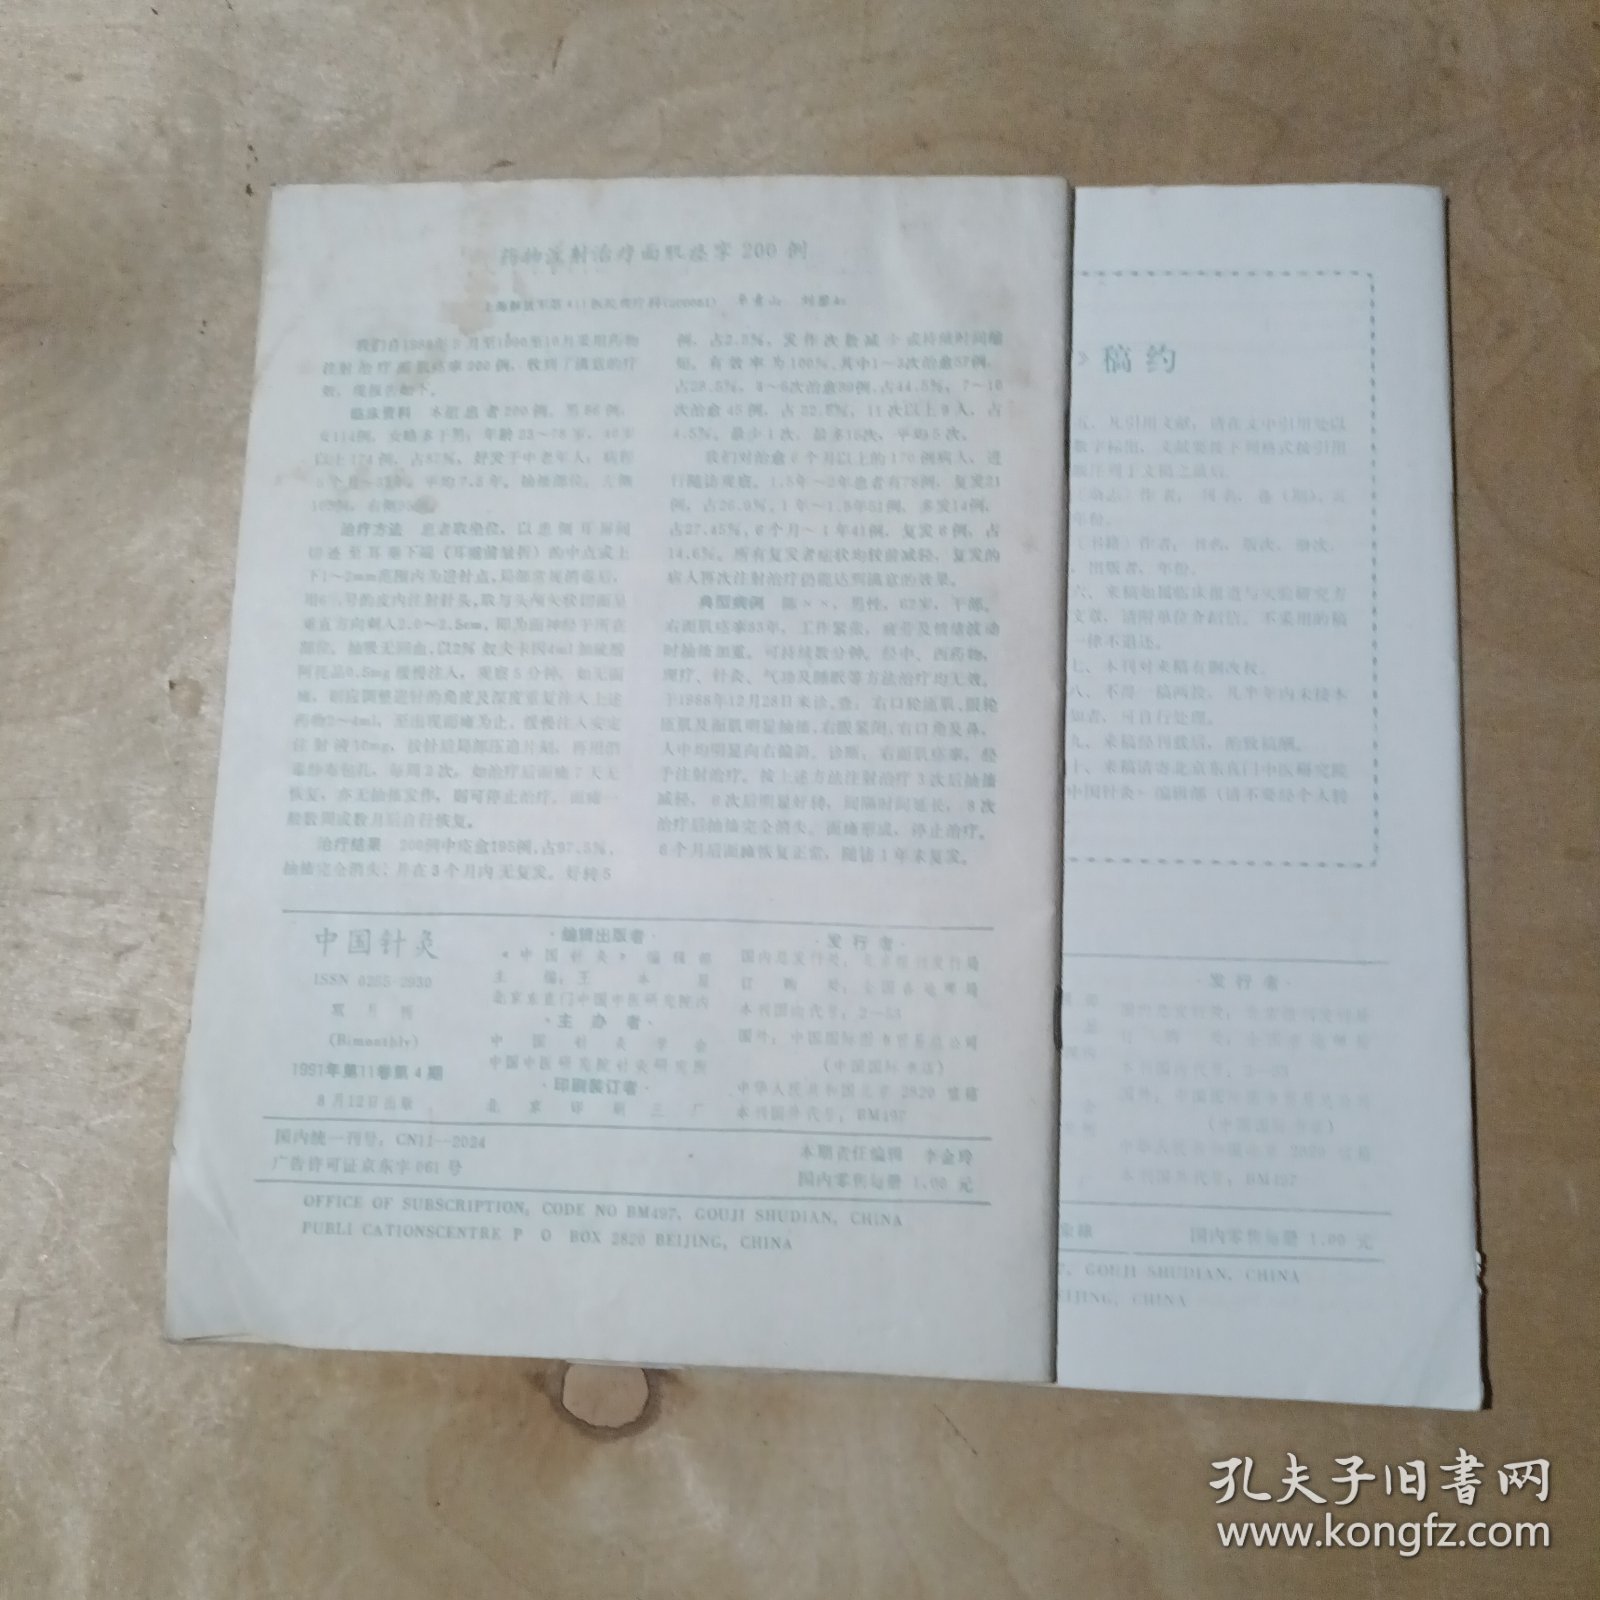 药物注射治疗面肌痉挛200例
我们自1988年3月至1990年10月采用药物
注射治疗面肌痉挛200例，收到了满意的疗
效，现报告如下。
临床资料 本组患者200例，男86例，
女114例，女略多于男；年龄23～78岁，
以上174例，占87%，好发于中老年人；病程
平均7.5年。抽搐部位，左侧
治疗方法 患者取坐位，以患侧耳屏间
切迹至耳垂下端（耳垂前皱折）的中点或上
下1～2mm范围内为进针点，局部常规消毒后，
号的皮内注射针头，取与头颅矢状切面呈
垂直方向刺入2.0～2.5cm，即为面神经干所在
部位，抽吸无回血，以2%奴夫卡因4ml加硫酸
阿托品0.5mg缓慢注入，观察5分钟，如无面
瘫，则应调整进针的角度及深度重复注入上述
药物2～4ml，至出现面瘫为止，缓慢注入安定
注射液10mg，拔针后局部压迫片刻，再用消
毒纱布包扎，每周2次，如治疗后面瘫7天无
恢复，亦无抽搐发作，则可停止治疗。面瘫一
般数周或数月后自行恢复。
治疗结果 200例中痊愈195例，占97.5%，
抽搐完全消失，并在3个月内无复发。好转5
例，占2.5%，发作次数减少或持续时间缩
短。有效率为100%，其中1～3次治愈57例，
占28.5%，4～6次治愈89例，占44.5%，7～10
次治愈45例，占22.5%，11次以上9人，占
4.5%。最少1次，最多15次，平均5次。
我们对治愈6个月以上的170例病人，进
行随访观察。1.5年～2年患者有78例，复发21
例，占26.9%，1年～1.5年51例，复发14例，
占27.45%，6个月～1年41例，复发6例，占
14.6%。所有复发者症状均较前减轻，复发的
病人再次注射治疗仍能达到满意的效果。
典型病例 陈××，男性，62岁，干部。
右面肌痉挛33年，工作紧张，疲劳及情绪波动
时抽搐加重。可持续数分钟，经中、西药物，
理疗、针灸、气功及睡眠等方法治疗均无效。
于1988年12月28日来诊，查：右口轮匝肌，眼轮
匝肌及面肌明显抽搐，右眼紧闭，右口角及鼻，
人中均明显向右偏斜。诊断：右面肌痉挛，经
予注射治疗。按上述方法注射治疗3次后抽搐
减轻，6次后明显好转，间隔时间延长，8次
治疗后抽搐完全消失。面瘫形成，停止治疗。
6个月后面瘫恢复正常，随访1年未复发。
中国针灸
ISSN 0255-2930
双月刊
(Bimonthly)
1991年第11卷第4期
8月12日出版
·编辑出版者·
《中国针灸》编辑部
主编：王
北京东直门中国中医研究院内
·主办者·
中国针灸学会
中国中医研究院针灸研究所
·印刷装订者·
北京印刷三厂
·发行者·
国内总发行处：北京报刊发行局
订购处：全国各地邮局
本刊国内代号：2-53
国外：中国国际图书贸易总公司
（中国国际书店）
中华人民共和国北京2820信箱
本刊国外代号：BM497
国内统一刊号：CN11-2024
广告许可证京东字061号
本期责任编辑 李金玲
国内零售每册 1.00 元
OFFICE OF SUBSCRIPTION, CODE NO BM497, GOUJI SHUDIAN, CHINA
PUBLI CATIONSCENTRE P O BOX 2820 BEIJING, CHINA
》稿约
五、凡引用文献，请在文中引用处以
数字标出，文献要按下列格式按引用
顺序列于文稿之最后。
年份。
（书籍）作者，书名，版次，册次，
出版者，年份。
六、来稿如属临床报道与实验研究方
文章，请附单位介绍信。不采用的稿
一律不退还。
七、本刊对来稿有删改权。
八、不得一稿两投，凡半年内未接本
知者，可自行处理。
九、来稿经刊载后，酌致稿酬。
十、来稿请寄北京东直门中医研究院
中国针灸》编辑部（请不要经个人转
·发行者·
（中国国际书店）
本刊国外代号：BM497
国内零售每册 1.00 元
GOUJI SHUDIAN, CHINA
EIJING, CHINA
孔夫子旧书网
www.kongfz.com